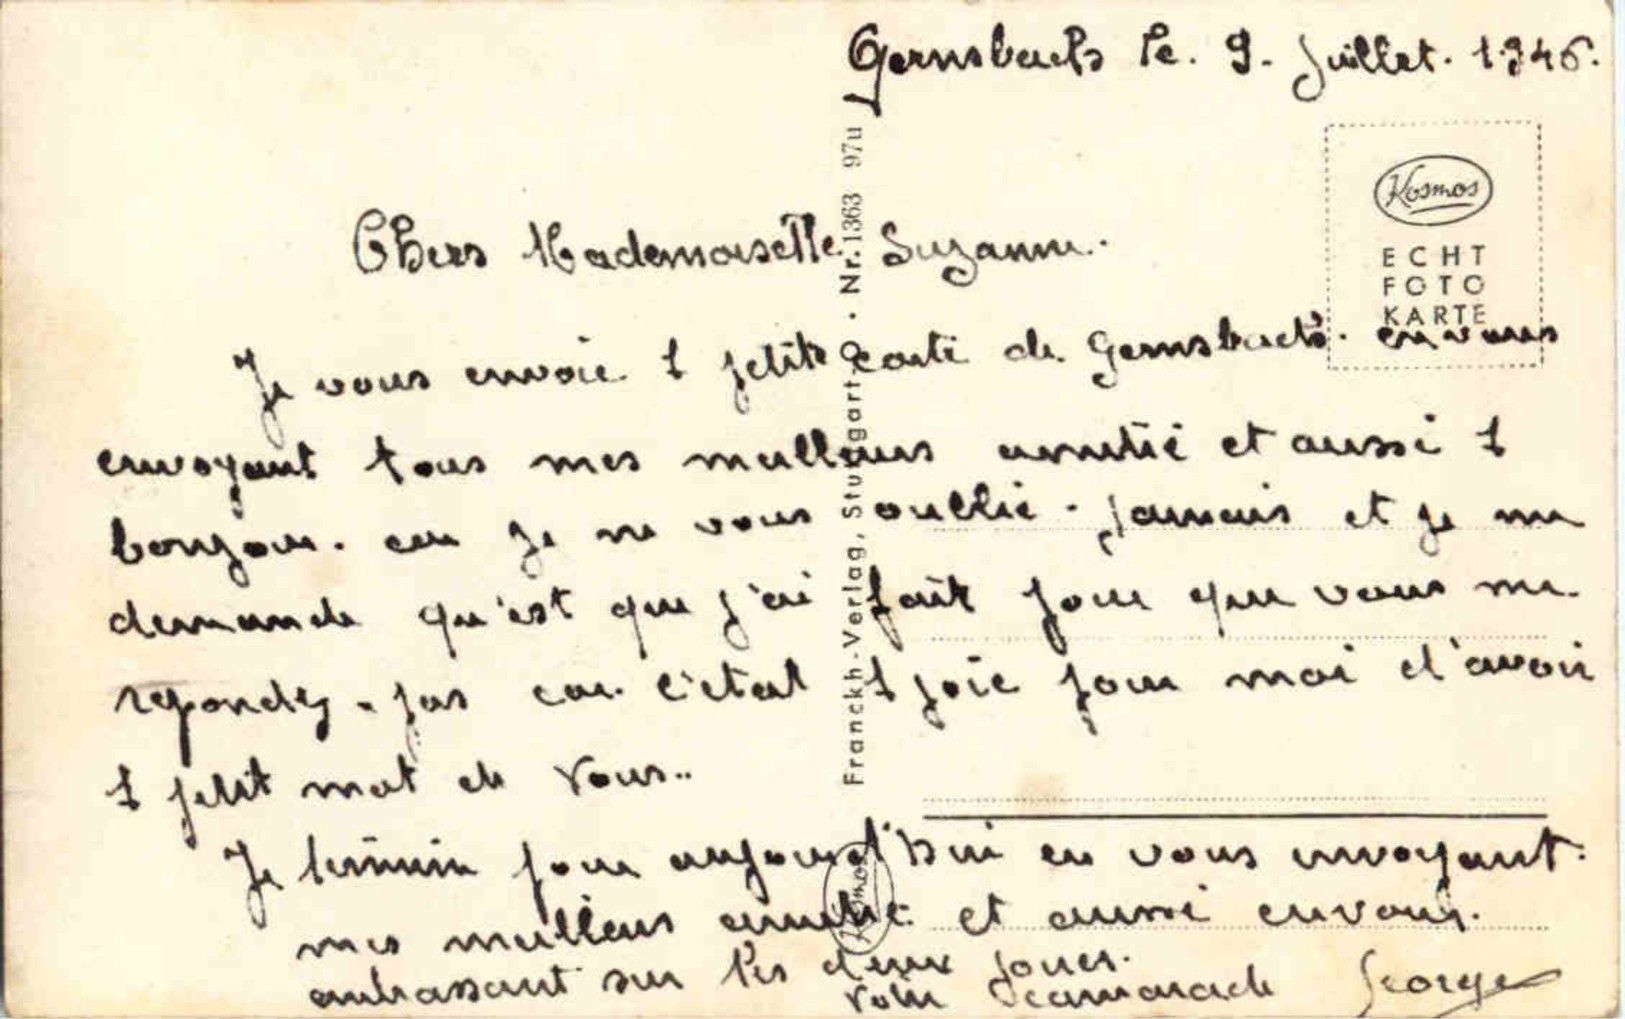 Gernsbach le. 9. Juillet. 1946.
Kosmos
ECHT
FOTO
KARTE
Chers Mademoiselle Suzanne.
Je vous envoie 1 petite carte de Gernsbach. en vous
envoyant tous mes meilleurs amitié et aussi 1
bonjour. car je ne vous oublie. jamais et je me
demande qu'est que j'ai fait pour que vous me.
repondez. pas car. c'etat 1 joie pour moi d'avoir
1 petit mot de vous..
Je termine pour aujourd'hui en vous envoyant.
mes meilleurs amitié. et aussi envous.
embrassant sur les deux joues.
votre camarade George
Franckh-Verlag, Stuttgart-O · Nr. 1363 97u
Kosmos